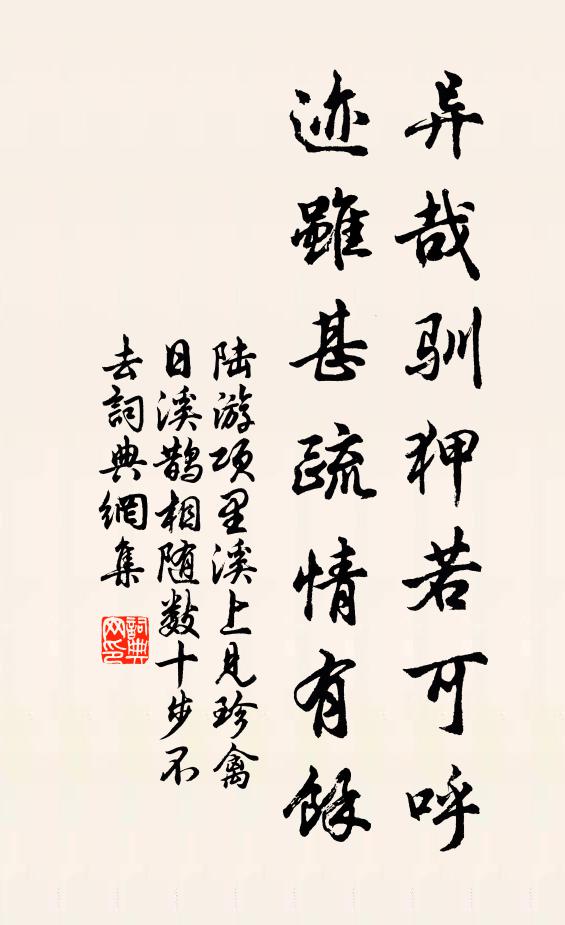 异哉驯狎若可呼
迹雖甚疏情有餘
陆游项里溪上见珍禽
日溪鹊相随数十步不
去詞典網集
詞典
网印